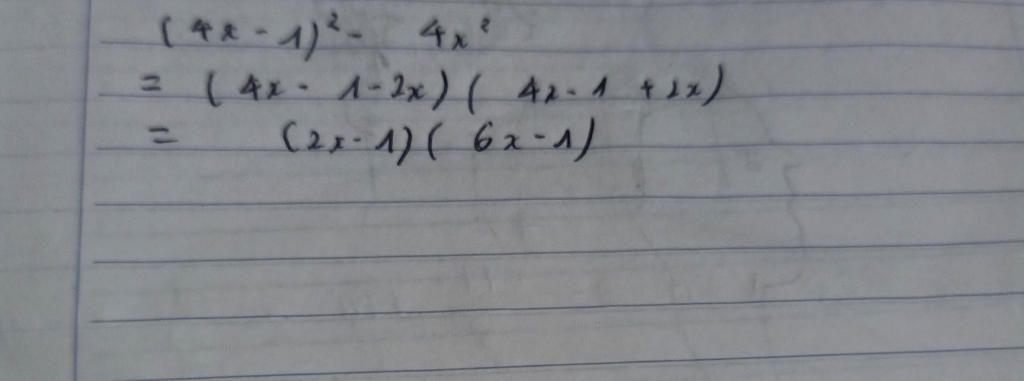 (4x - 1)² - 4x²
= (4x - 1 - 2x) (4x - 1 + 2x)
= (2x - 1) (6x - 1)